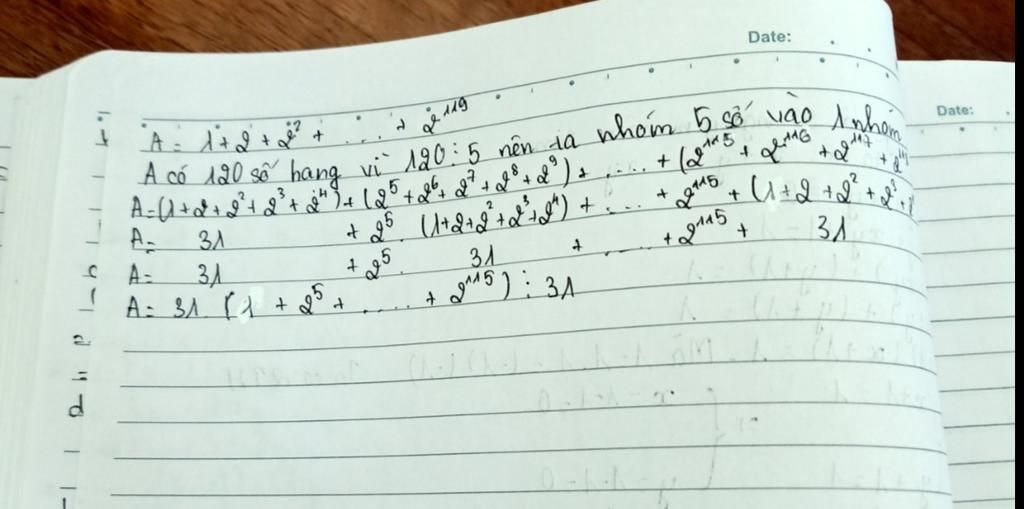 Date:
Date:
A = 1 + 2 + 2² + .... + 2¹¹⁹
A có 120 số hang vì 120 ⋮ 5 nên ta nhóm 5 số vào 1 nhóm
A = (1+2+2²+2³+2⁴) + (2⁵+2⁶+2⁷+2⁸+2⁹) + ..... + (2¹¹⁵ + 2¹¹⁶ + 2¹¹⁷ +
A = 31 + 2⁵ . (1+2+2²+2³+2⁴) + .... + 2¹¹⁵ + (1+2+2²+2³+
A = 31 + 2⁵ . 31 + ..... + 2¹¹⁵ + 31
A = 31 (1 + 2⁵ + ..... + 2¹¹⁵) ⋮ 31